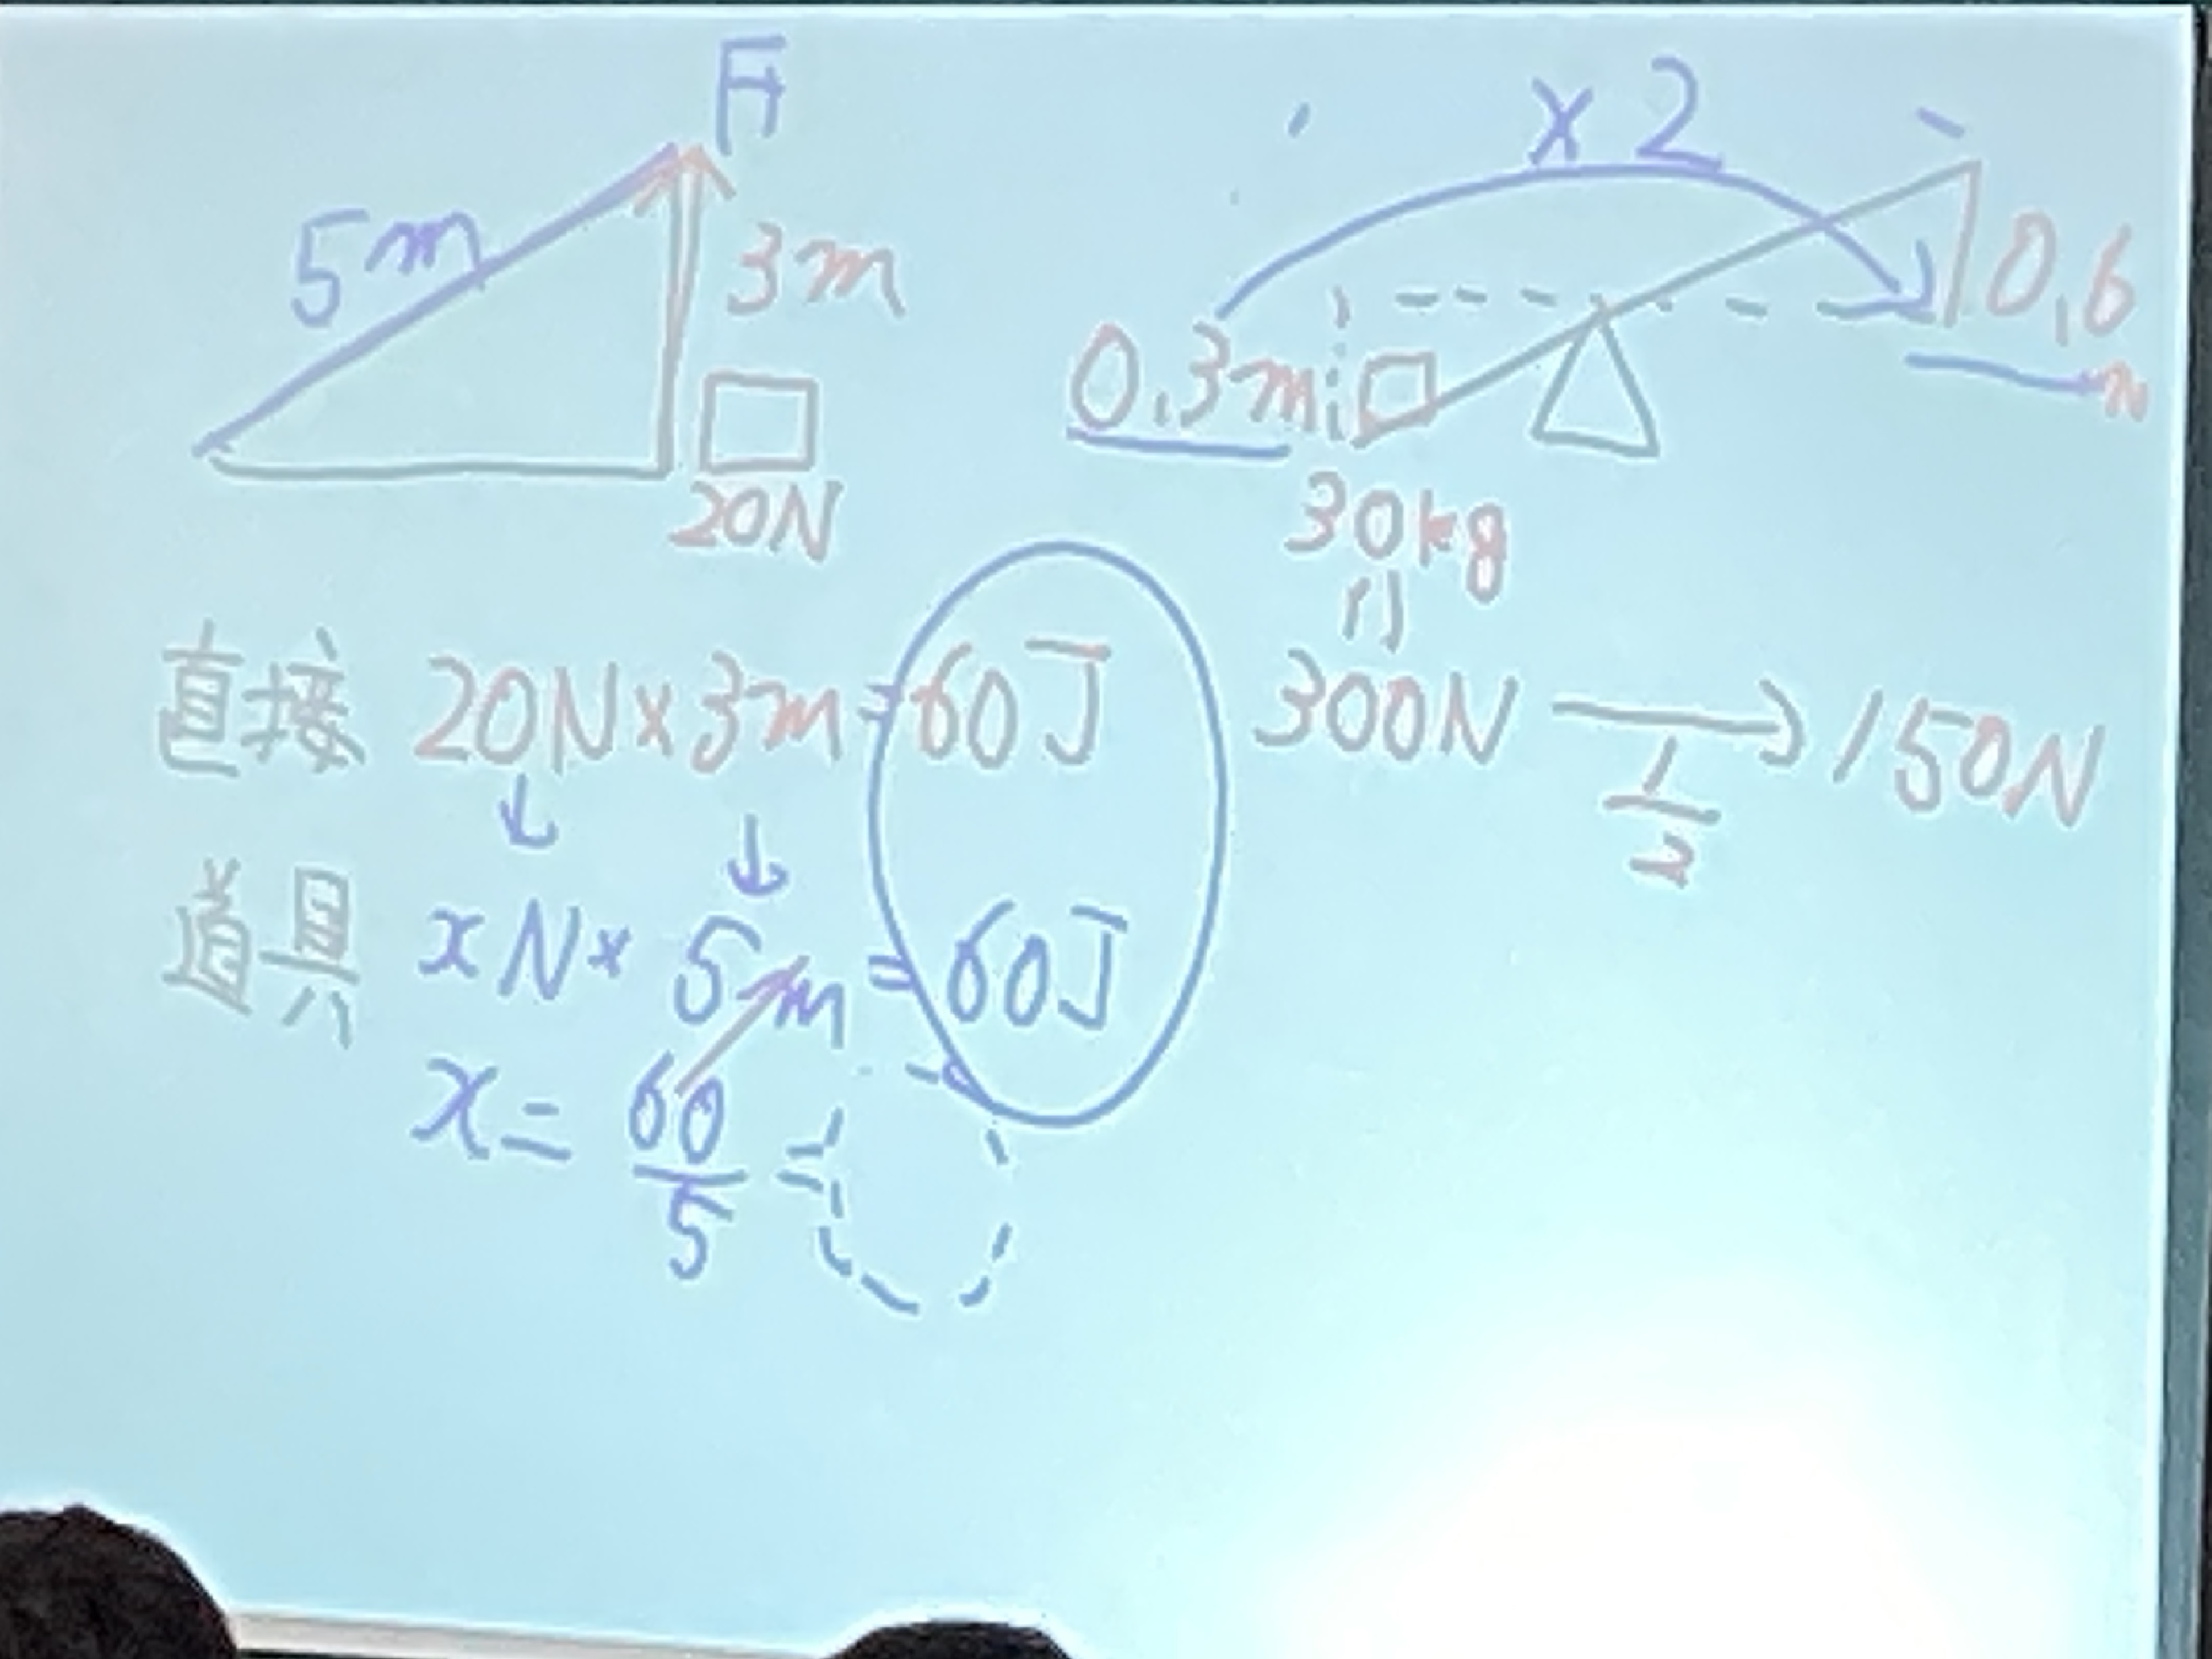 F
5m
3m
20N
×2
0.3m
0.6
m
30kg
300N → 150N
1/2
直接 20N×3m=60J
道具 xN×5m=60J
x=60/5=